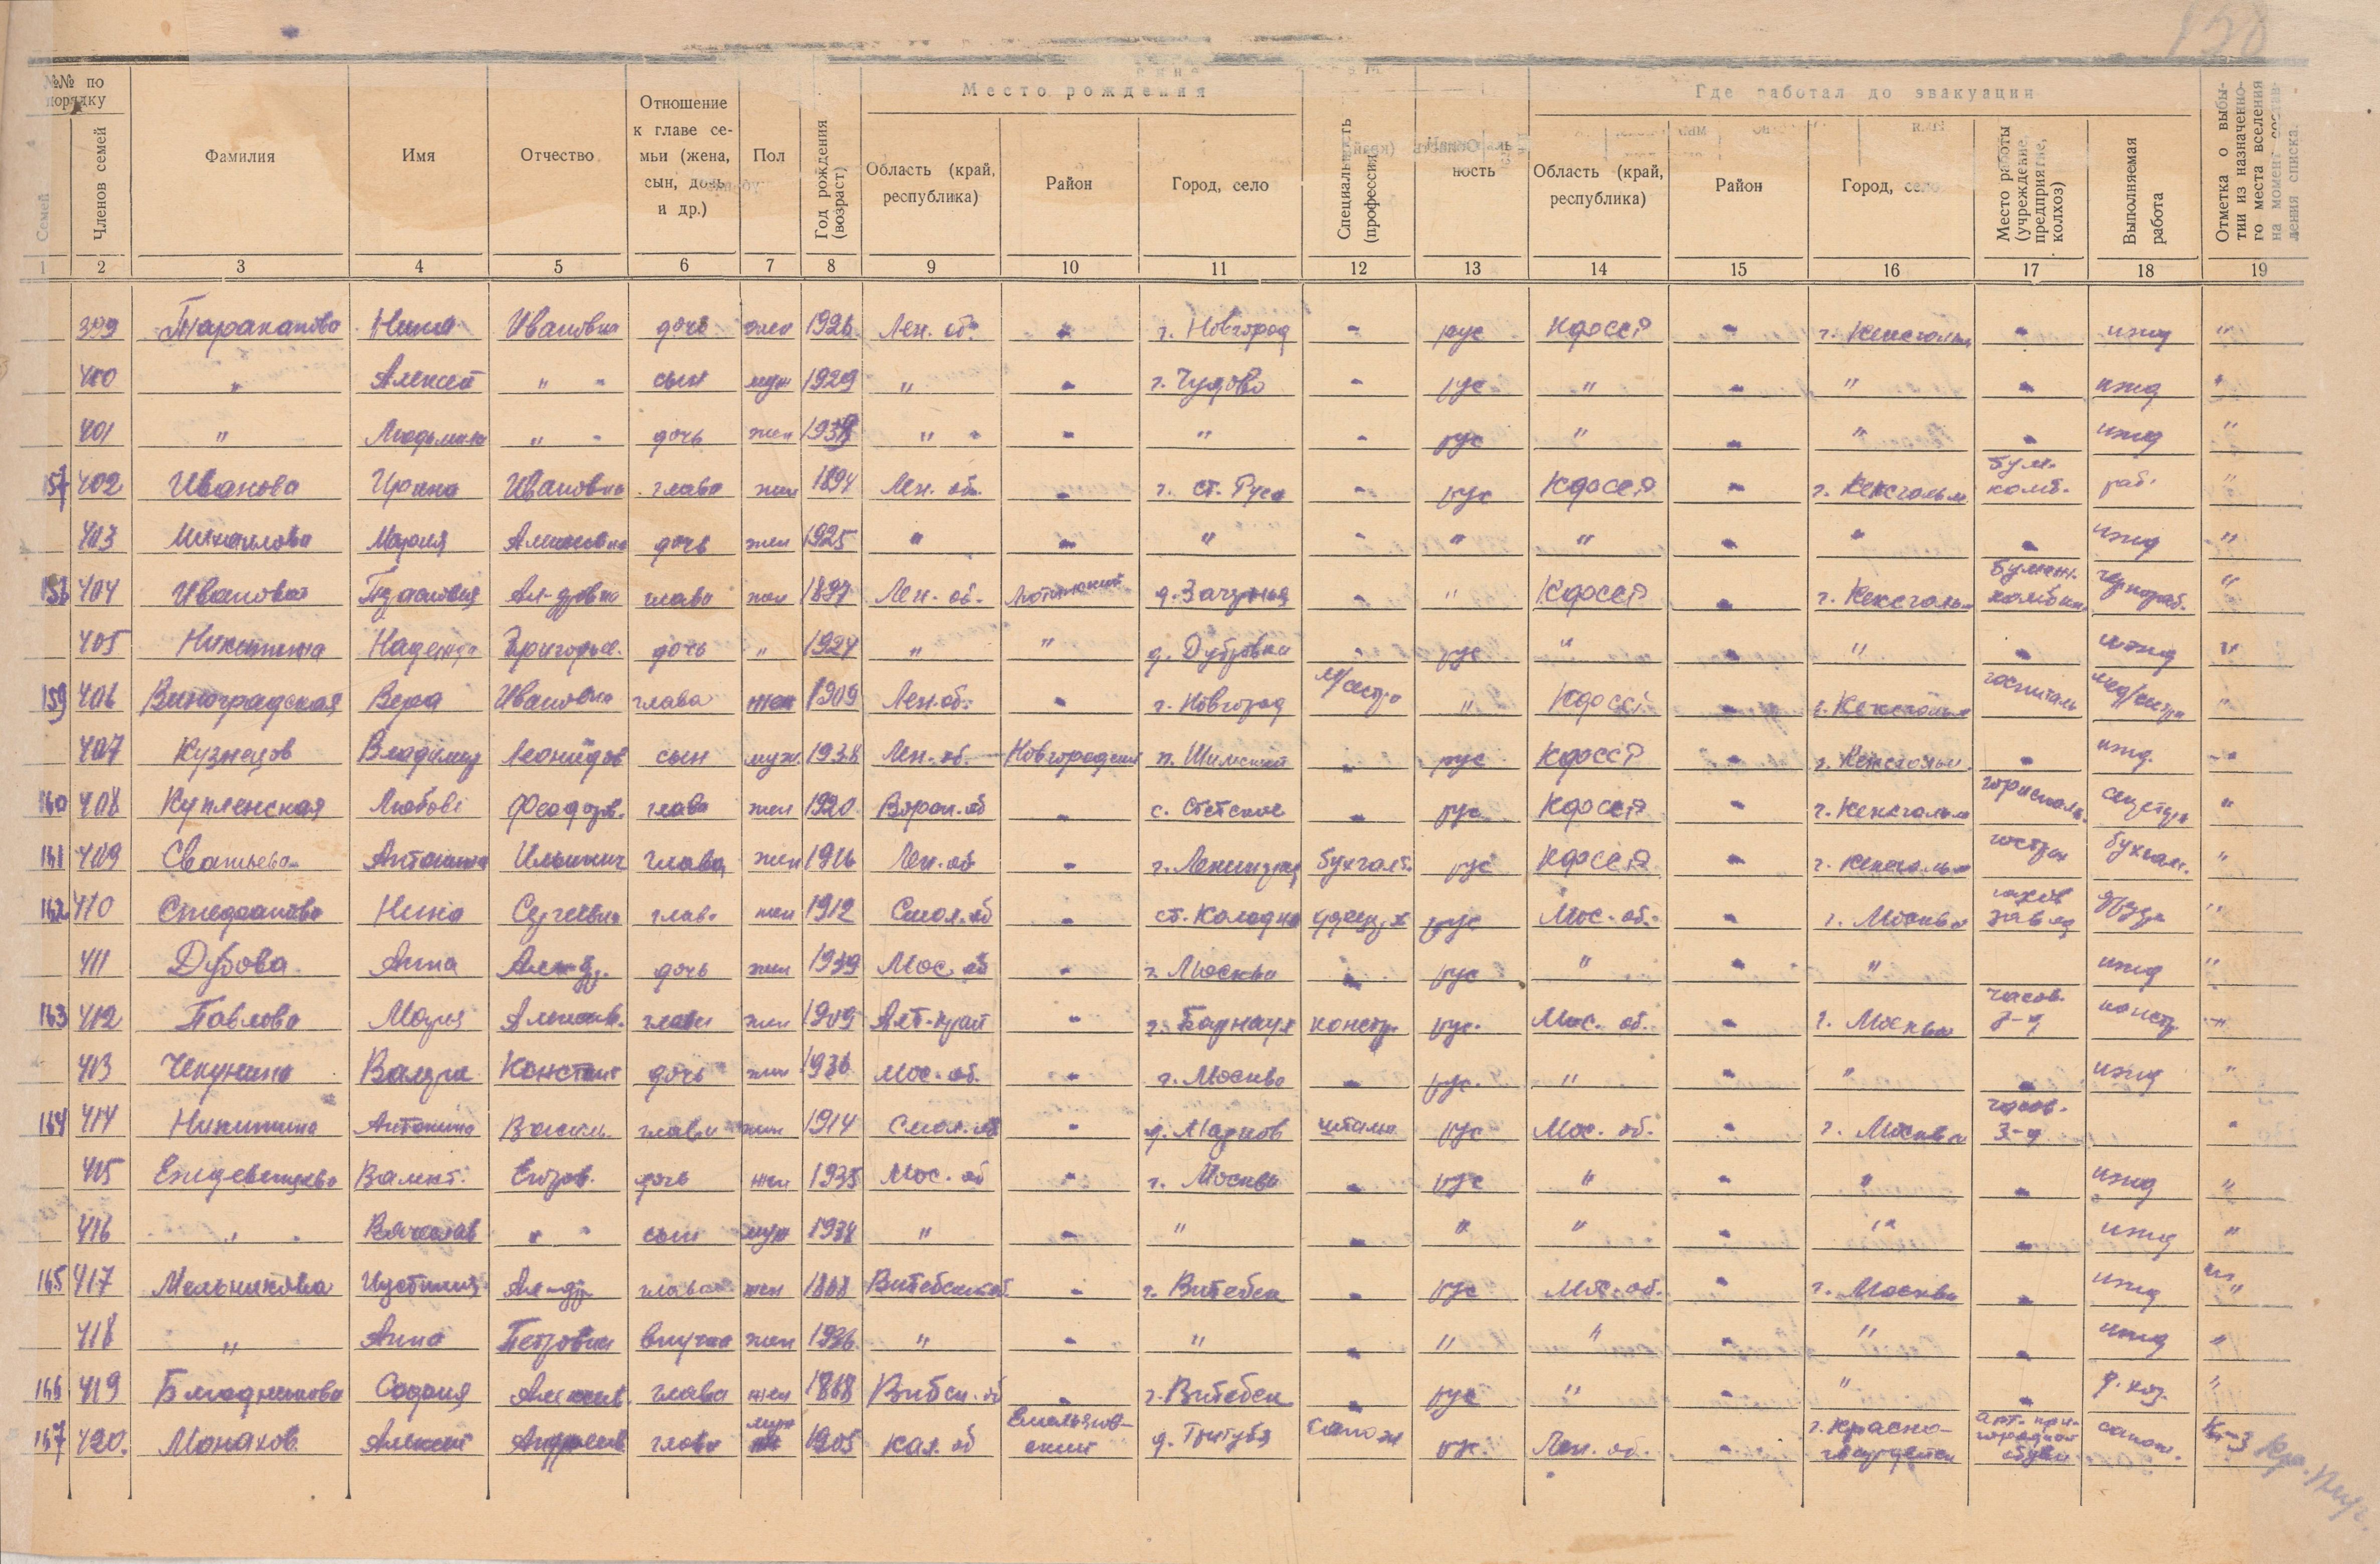 138
№№ по порядку
Место рождения
Где работал до эвакуации
Семей
Членов семей
Фамилия
Имя
Отчество
Отношение к главе се-мьи (жена, сын, дочь и др.)
Пол
Год рождения (возраст)
Область (край, республика)
Район
Город, село
Специальность (профессия)
ность
Область (край, республика)
Район
Город, село
Место работы (учреждение, предприятие, колхоз)
Выполняемая работа
Отметка о выбы-тии из назначенно-го места вселения на момент состав-ления списка.
1 2 3 4 5 6 7 8 9 10 11 12 13 14 15 16 17 18 19
399 Тараканова Нина Ивановна дочь жен 1926 Лен. об. - г. Новгород - рус КФССР - г. Кексгольм - ижд "
400 " Алексей " - сын муж 1929 " - г. Чудово - рус " - " - ижд "
401 " Людмила " - дочь жен 1938 " - - " - рус " - " - ижд "
157 402 Иванова Ирина Ивановна глава жен 1894 Лен. об. - г. ст. Руса - рус КФССР - г. Кексгольм бум. комб. раб. "
403 Михайлова Мария Алексеевна дочь жен 1925 " - " - " " - " - ижд "
158 404 Иванова Ал-дровна глава жен 1897 Лен. об. - " КФССР - г. Кексгольм бумаж. комбин. чернораб. "
405 Никитина Надежда Григорьев. дочь " 1924 " " д. Дубровка - рус " - " - ижд "
159 406 Виноградская Вера Ивановна глава жен 1909 Лен. об. - г. Новгород м/сестра " КФССР - г. Кексгольм госпиталь мед/сестра "
407 Кузнецов Владимир Леонидов сын муж. 1938 Лен. об. Новгородский п. Шимский - рус КФССР - г. Кексгольм - ижд. "
160 408 Купленская Любовь Феодоров. глава жен 1920 Ворон. об - с. - рус КФССР - г. Кексгольм "
161 409 Антонина Ильинич глава жен 1916 Лен. об - г. Ленинград бухгалт. рус КФССР - г. Кексгольм бухгал. "
162 410 Степанова Нина Сергеевна глава жен 1912 Смол. об - ст. Колодня рус Мос. об. - г. Москва завод "
411 Дубова Анна Алек-др. дочь жен 1939 Мос. об - г. Москва - рус " - " ижд "
163 412 Павлова Мария Алексеев. глава жен 1909 Алт. край - г. Барнаул констр. рус. Мос. об. - г. Москва часов. з-д констр. "
413 Чекунина Констан дочь жен 1936 Мос. об. - г. Москва - рус. " - " - ижд "
164 414 Никитина Антонина Василь. глава жен 1914 Смол. об - д. Марков штамп рус Мос. об. - г. Москва часов. з-д "
415 Валент. Егоров. дочь жен 1935 Мос. об - г. Москва - рус " - " - ижд "
416 " Вячеслав " - сын муж 1938 " - " - " " - " - ижд "
165 417 Мельникова Иустиния Ал-др глава жен 1868 Витебская об. - г. Витебск - рус Мос. об. - г. Москва - ижд "
418 " Анна Петровна внучка жен 1936 " - " - " " - " - ижд "
166 419 София Алексеев. глава жен 1868 Витебск. об - г. Витебск - рус " - " - д. хоз. "
167 420. Монахов Алексей Андреев глава муж 1905 Кал. об сапож рус. Лен. об. - г. Красно-гвардейск обуви сапож.